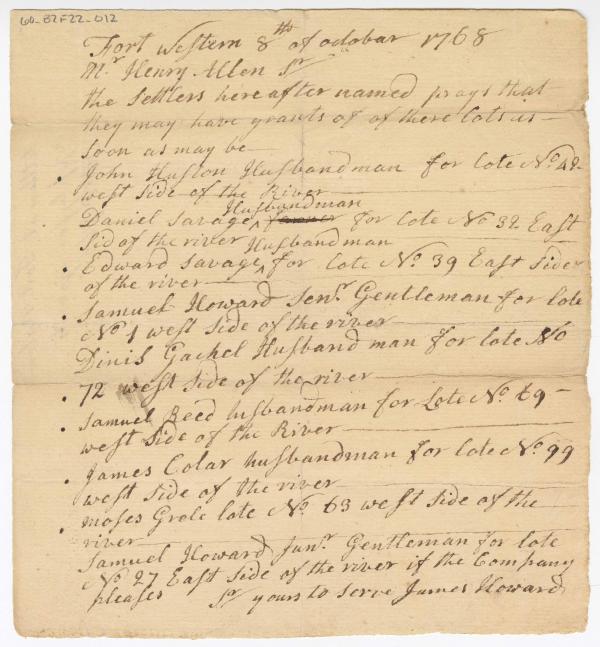 60-B2F22-012
Fort western 8th of octobar 1768
Mr Henry Allen Sr
the settlers here after named prays that
they may have grants of of there lots is —
soon as may be —
John Huston Husbandman for lote No 48-
west side of the River
Husbandman
Daniel Savage ^ for lote No 32 East
Sid of the river Husbandman
Edward Savage ^ for lote No 39 East side
of the river
Samuel Howard Senr Gentleman for lote
No 1 west side of the river
Dinis Gachel Husband man for lote No
72 west side of the river
Samuel Reed husbandman for Lote No 69 -
west side of the River
James Colar husbandman for lote No 99
west side of the river
moses Grele late No 63 west side of the
river
Samuel Howard Junr Gentleman for lote
No 27 East side of the river if the Company
pleases Sr yours to serve James Howard